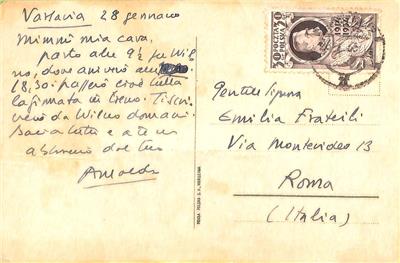 Varsavia 28 gennaio
Mimmi mia cara,
parto alle 9½ per Wil-
no, dove arriverò alle
18,30: passerò cioè tutta
la giornata in treno. Ti scri-
verò da Wilno domani.
Bacia tutti e a te un
abbraccio dal tuo
Arnaldo
30 POCZTA POLSKA 30
Gentile Signora
Emilia Frateili
Via Montevideo 13
Roma
(Italia)